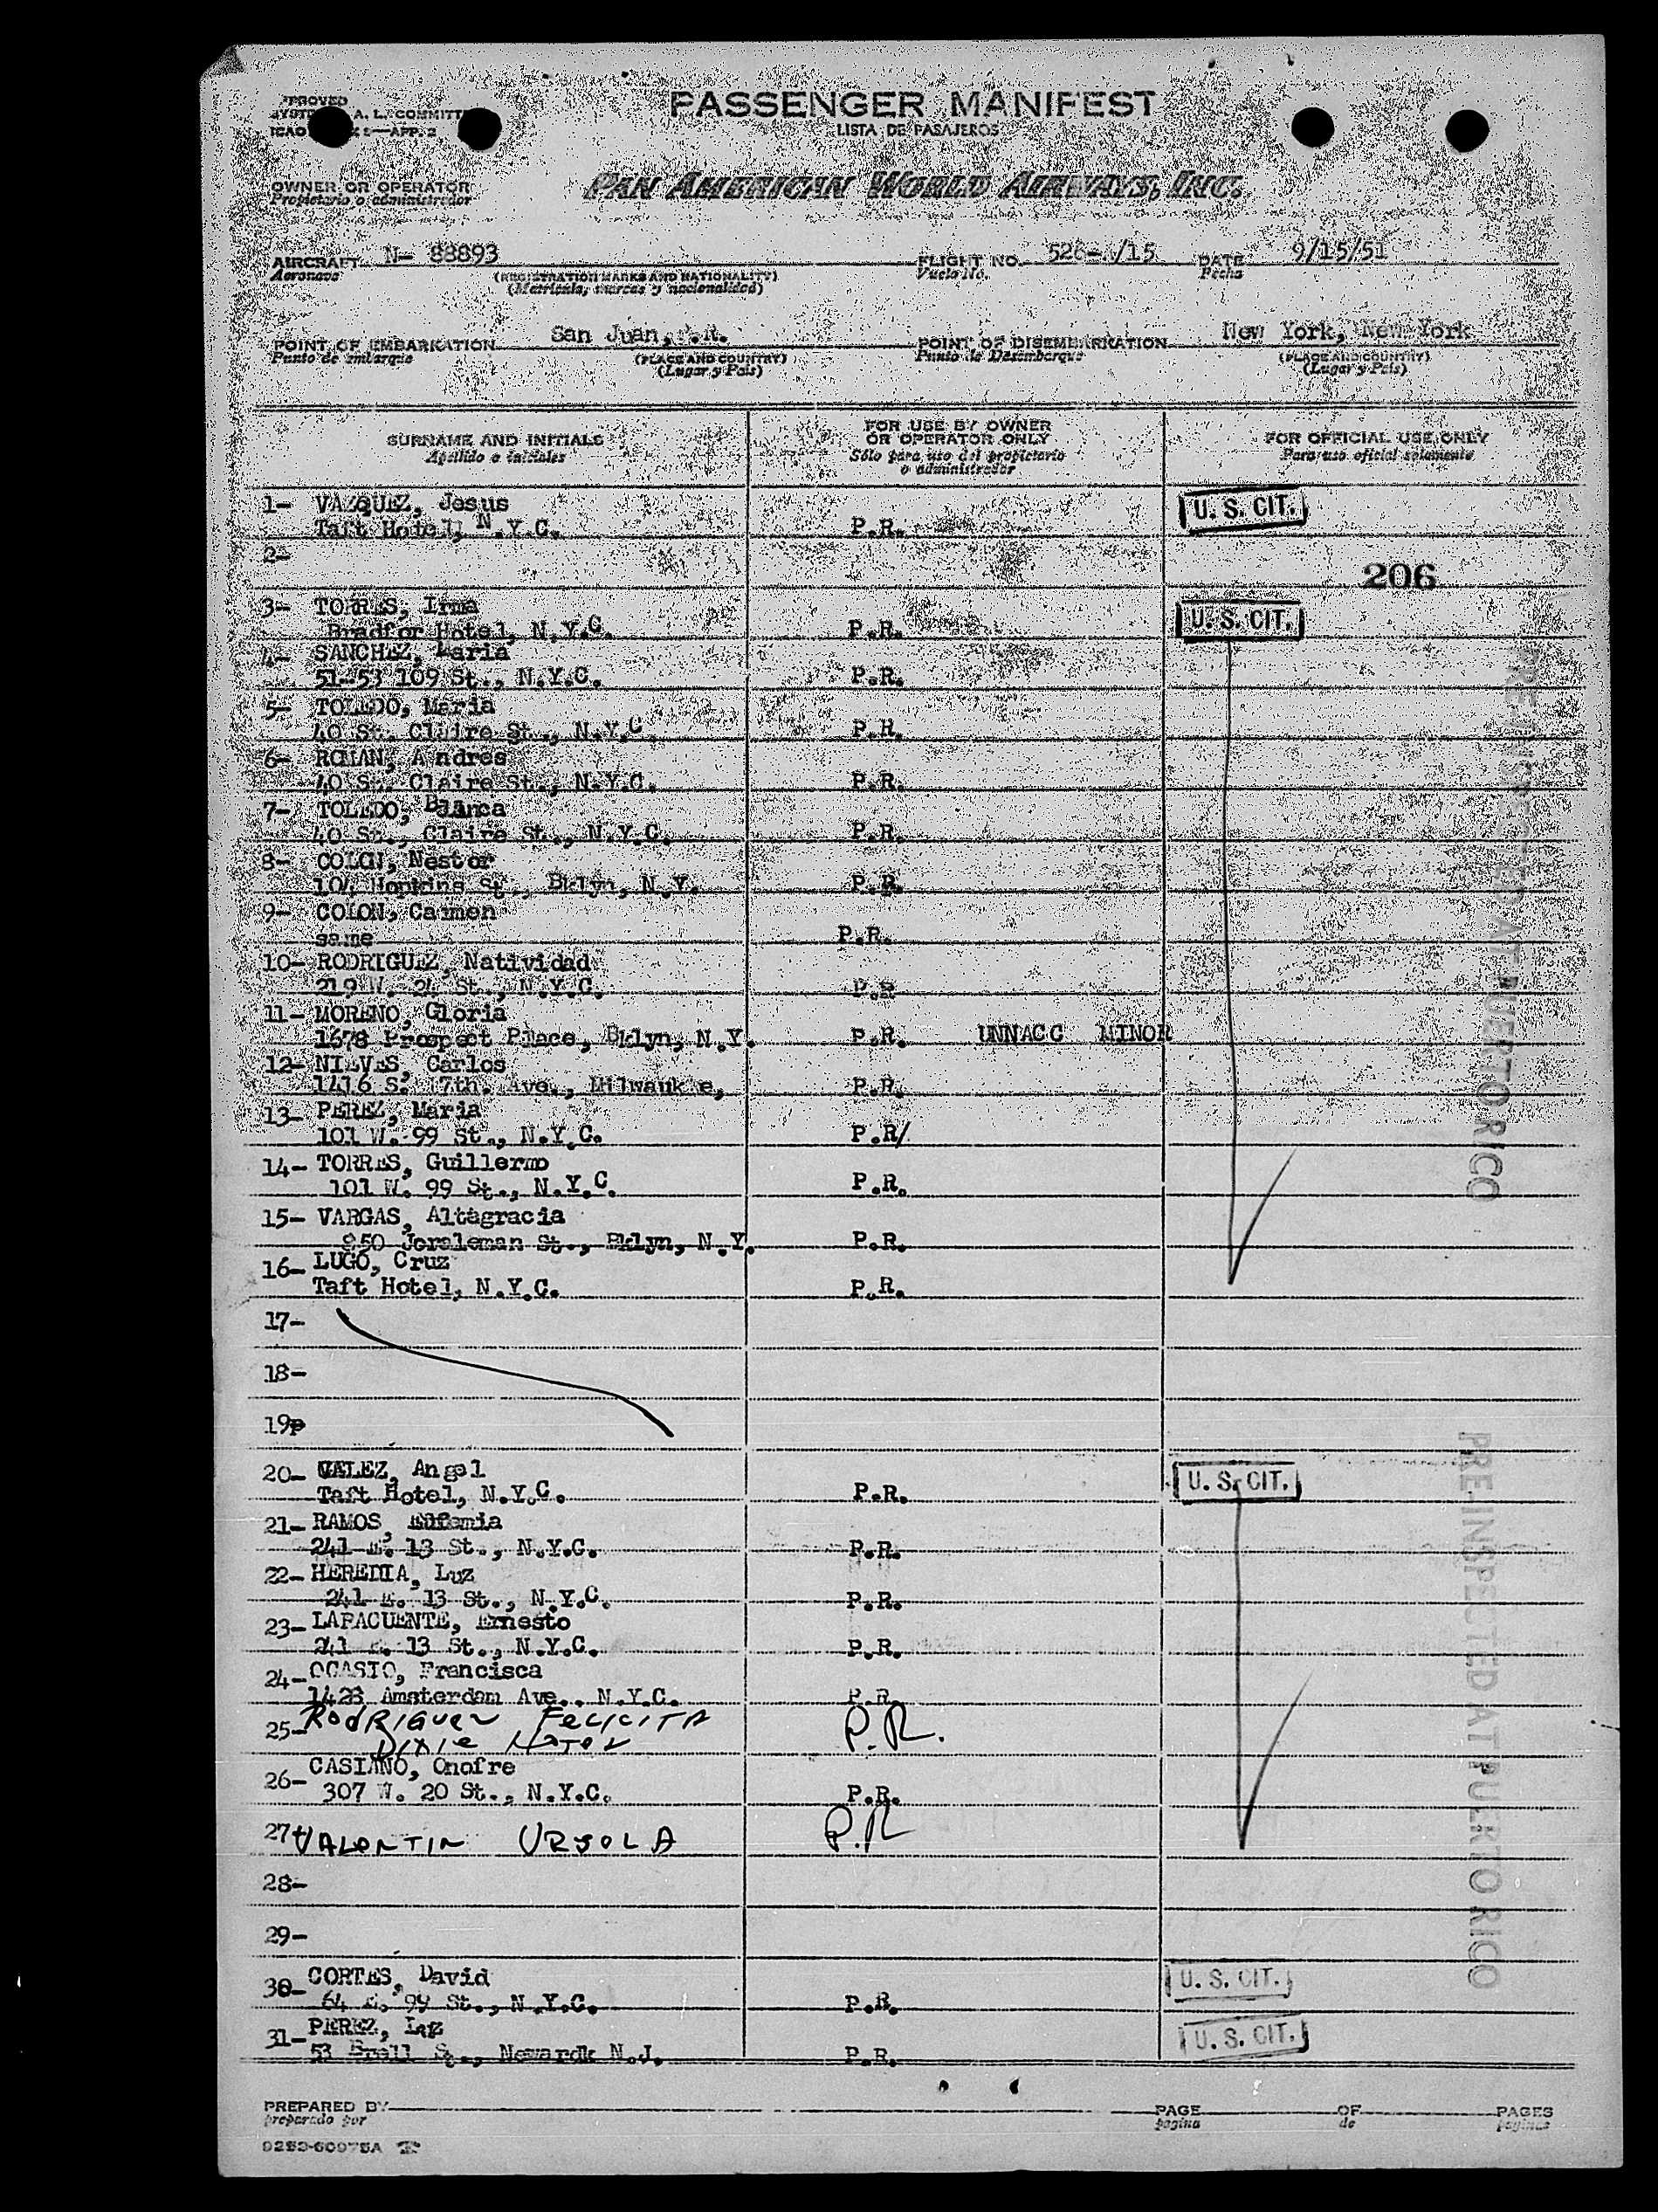 PASSENGER MANIFEST
LISTA DE PASAJEROS
PAN AMERICAN WORLD AIRWAYS, INC.
OWNER OR OPERATOR
Propietario o administrador
AIRCRAFT N- 88893 FLIGHT NO. DATE 9/15/51
Aeronave (REGISTRATION MARKS AND NATIONALITY) Vuelo No. Fecha
(Matrícula, marcas y nacionalidad)
POINT OF EMBARKATION San Juan, P.R. POINT OF DISEMBARKATION New York, New York
Punto de embarque (PLACE AND COUNTRY) Punto de Desembarque (PLACE AND COUNTRY)
(Lugar y País) (Lugar y País)
SURNAME AND INITIALS FOR USE BY OWNER OR OPERATOR ONLY FOR OFFICIAL USE ONLY
Apellido e iniciales Sólo para uso del propietario o administrador Para uso oficial solamente
1- VAZQUEZ, Jesus U. S. CIT.
Taft Hotel, N.Y.C. P.R.
2-
206
3- TORRES, Irma U. S. CIT.
Bradfor Hotel, N.Y.C. P.R.
4- SANCHEZ, Maria
51-53 109 St., N.Y.C. P.R.
5- TOLEDO, Maria
40 St. Claire St., N.Y.C P.R.
6- ROMAN, Andres
40 St. Claire St., N.Y.C. P.R.
7- TOLEDO, Blanca
40 St., Claire St., N.Y.C. P.R.
8- COLON, Nestor
104 Hopkins St., Bklyn, N.Y. P.R.
9- COLON, Carmen
same P.R.
10- RODRIGUEZ, Natividad
219 W. 24 St., N.Y.C. P.R
11- MORENO, Gloria
1678 Prospect Place, Bklyn, N.Y. P.R. UNNACC MINOR
12- NIEVES, Carlos
1416 S. 7th. Ave., P.R.
13- PEREZ, Maria
101 W. 99 St., N.Y.C. P.R/
14- TORRES, Guillermo
101 W. 99 St., N.Y.C. P.R.
15- VARGAS, Altagracia
850 Joraleman St., Bklyn, N.Y. P.R.
16- LUGO, Cruz
Taft Hotel, N.Y.C. P.R.
17-
18-
19-
20- VALEZ, Angel U. S. CIT.
Taft Hotel, N.Y.C. P.R.
21- RAMOS, Eufemia
241 E. 13 St., N.Y.C. P.R.
22- HEREDIA, Luz
241 E. 13 St., N.Y.C. P.R.
23- LAFACUENTE, Ernesto
241 E. 13 St., N.Y.C. P.R.
24- OCASIO, Francisca
1428 Amsterdam Ave., N.Y.C. P.R.
25- RODRIGUEZ FELICITA P.R.
DIXIE HOTEL
26- CASIANO, Onofre
307 W. 20 St., N.Y.C. P.R.
27- VALENTIN URSOLA P.R
28-
29-
30- CORTES, David U. S. CIT.
64 E. 99 St., N.Y.C. P.R.
31- PEREZ, Luz U. S. CIT.
53 St., Newardk N.J. P.R.
PREPARED BY PAGE OF PAGES
preparado por página de páginas
PRE-INSPECTED AT PUERTO RICO
PRE-INSPECTED AT PUERTO RICO